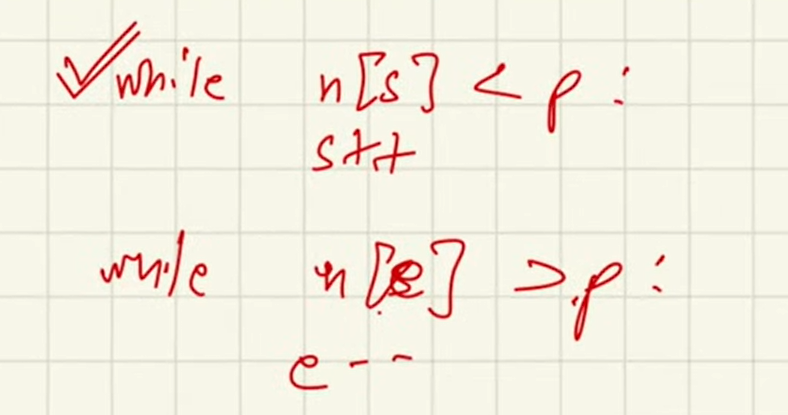 while n[s] < p :
s++
while n[e] > p :
e--